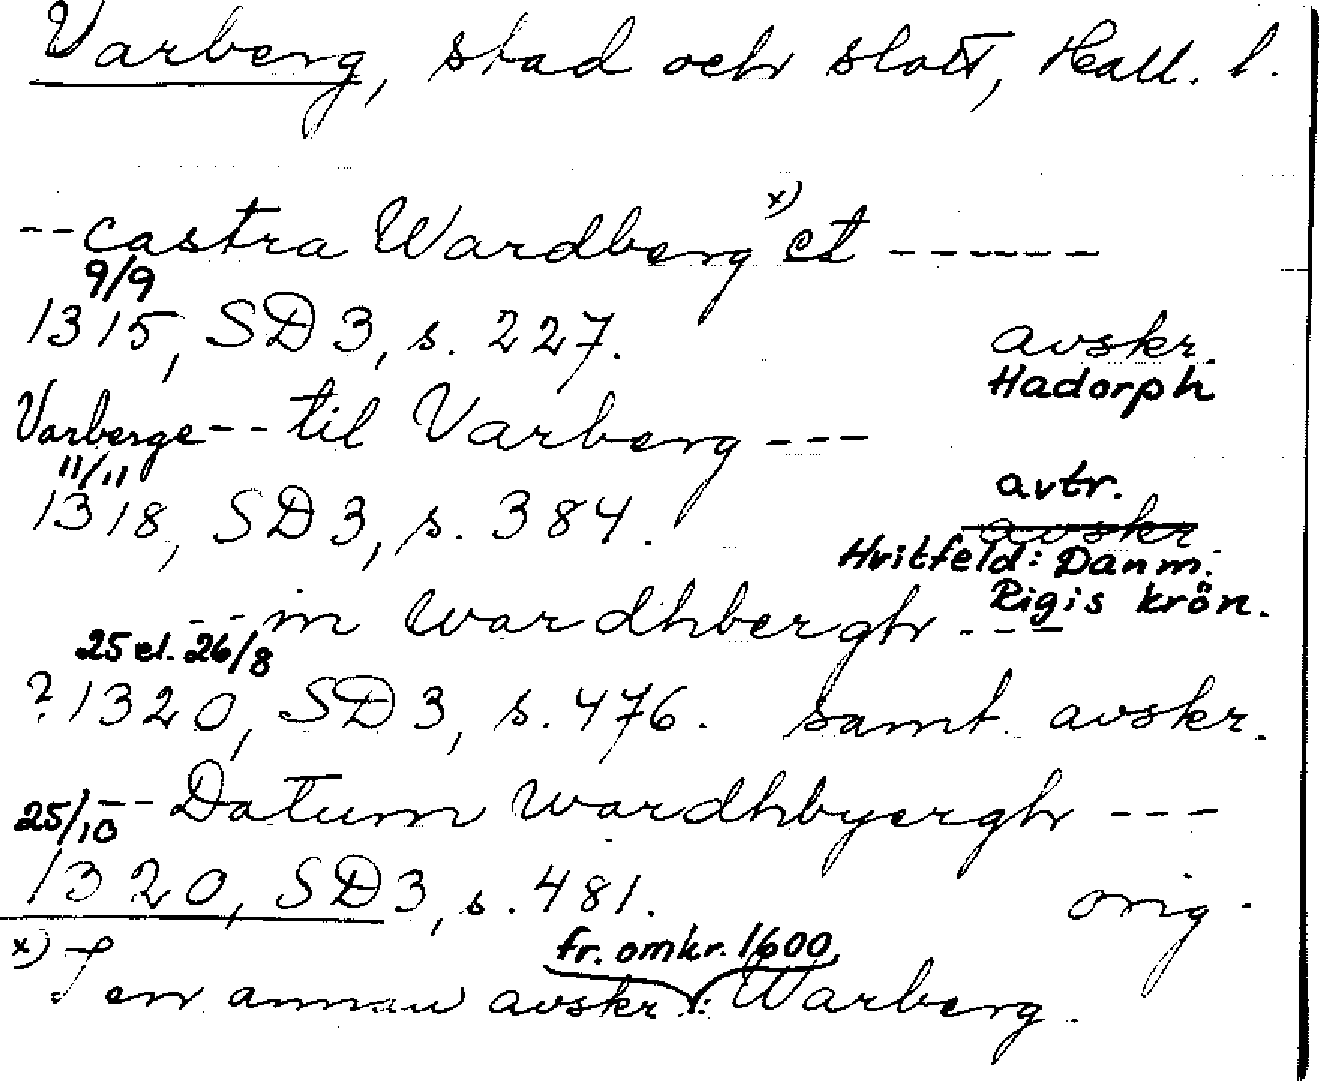 Varberg, stad och slott, Hall. l.
--castra Wardberg x) et ------
9/9
1315, SD 3, s. 227. avskr.
Hadorph
Varberge -- til Varberg ---
11/11
1318, SD 3, s. 384. avtr.
avskr
Hvitfeld: Danm.
Rigis krön.
-- in wardhbergh ---
25 el. 26/8
? 1320, SD 3, s. 476. samt. avskr.
-- Datum wardhbyergh ---
25/10
1320, SD 3, s. 481. orig.
fr. omkr. 1600
x) I en annan avskr.: Warberg.